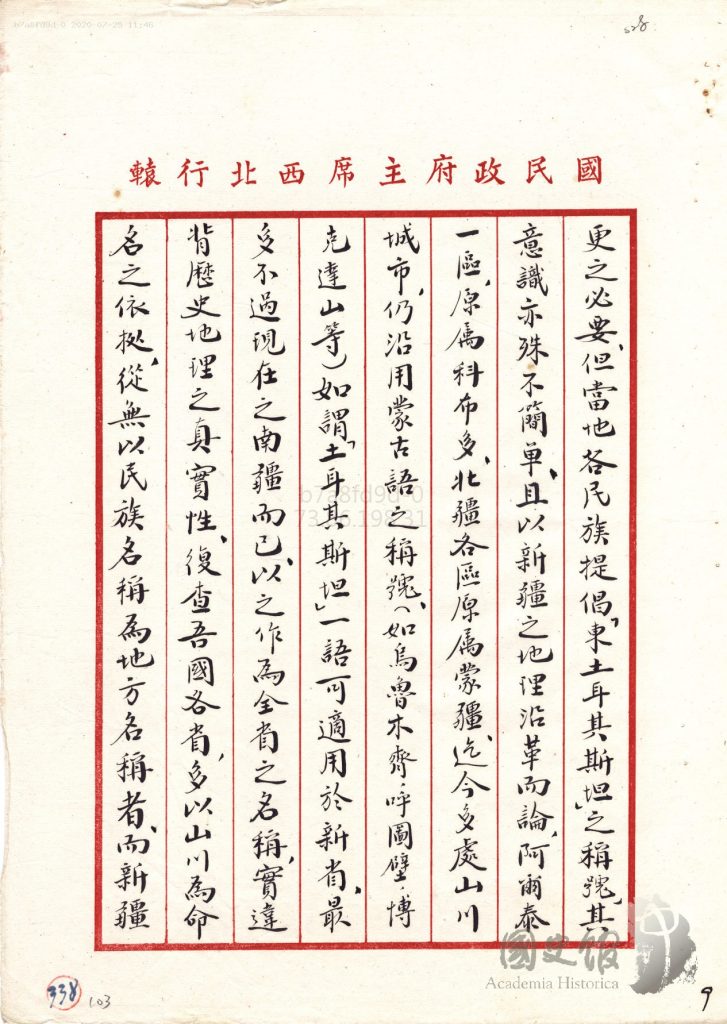 b7a8fd9d-0 2020-07-25 11:46
328
國民政府主席西北行轅
更之必要、但當地各民族提倡「東土耳其斯坦」之稱號、其
意識亦殊不簡單、且以新疆之地理沿革而論、阿爾泰
一區、原属科布多、北疆各區原属蒙疆、迄今多處山川
城市、仍沿用蒙古語之稱號、(如烏魯木齊·呼圖壁·博
克達山等)如謂「土耳其斯坦」一語可適用於新省、最
多不過現在之南疆而已、以之作為全省之名稱、實違
背歷史地理之真實性、復查吾國各省、多以山川為命
名之依据、從無以民族名稱為地方名稱者、而新疆
b7a8fd9d-0
國史館
Academia Historica
338
103
9